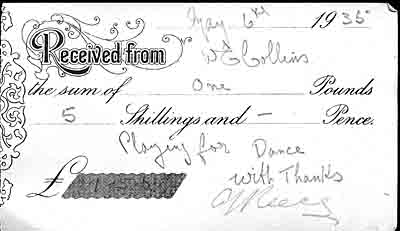 May 6th 1935
Received from W E Collins
the sum of One Pounds
5 Shillings and — Pence.
Playing for Dance
With Thanks
£ 1 - 5 -